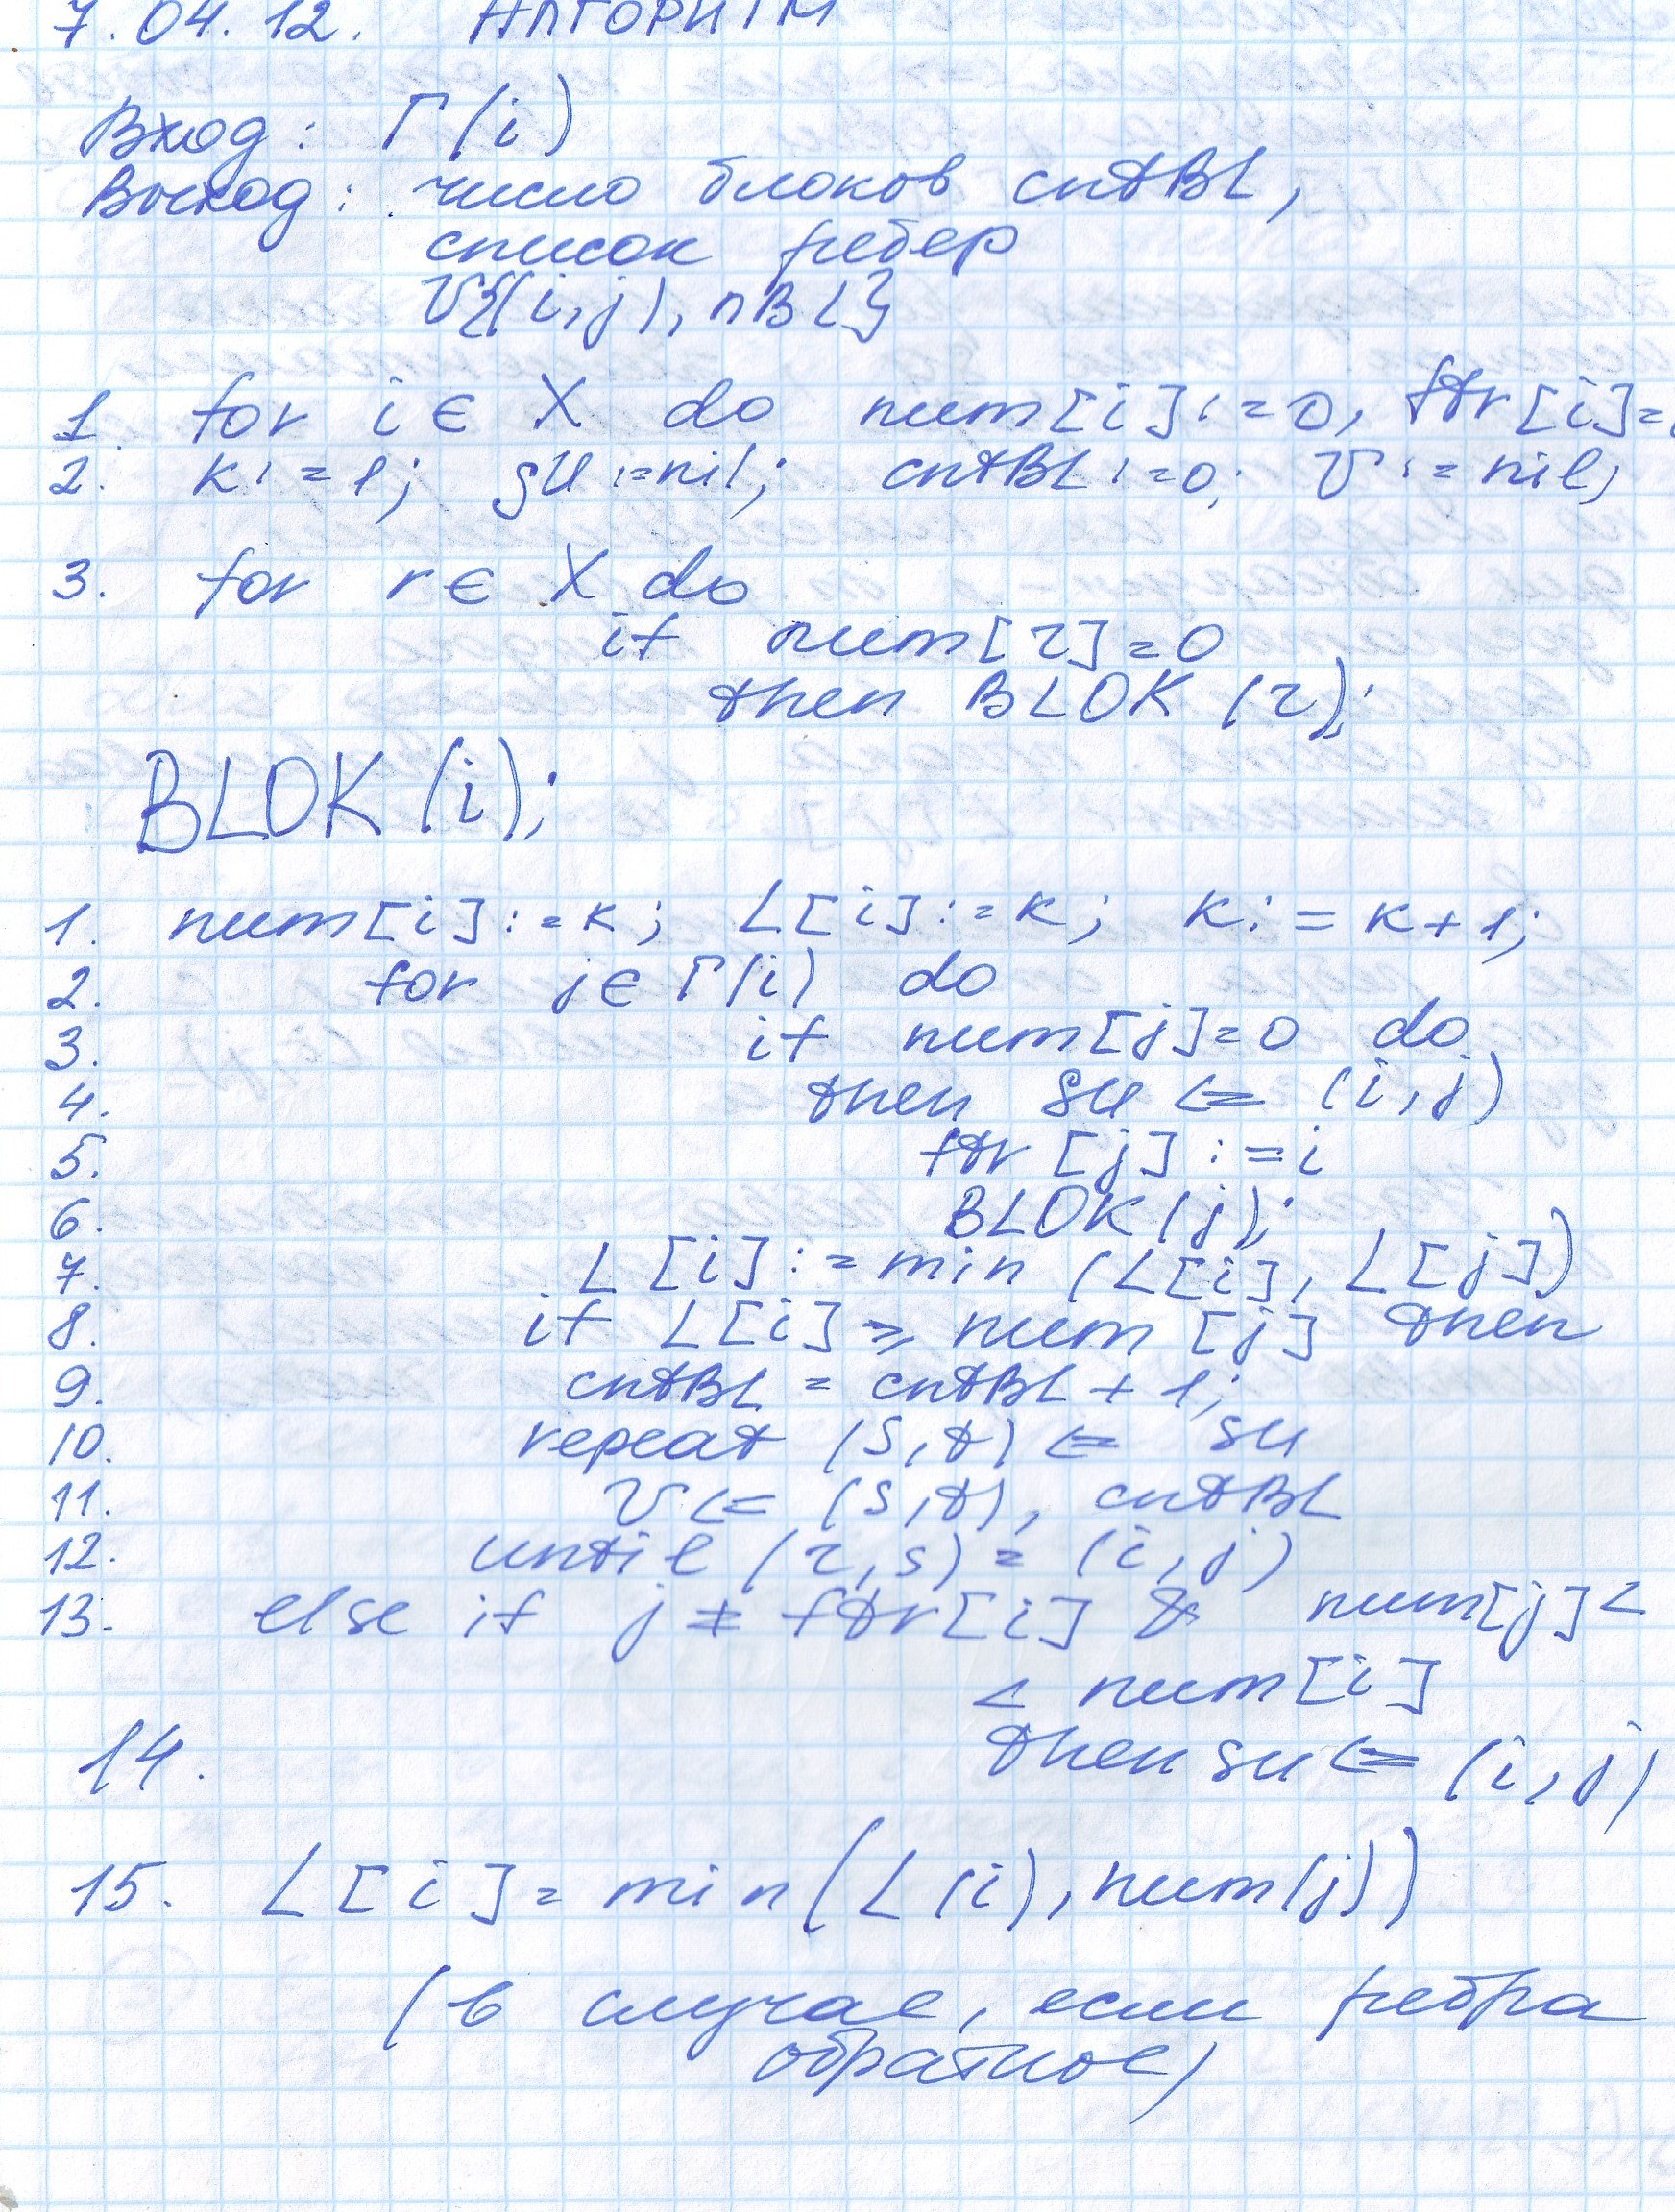 7.04.12. Алгоритм
Вход: Г(i)
Выход: число блоков cntBL,
список ребер
V{(i,j), nBL}
1. for i ∈ X do num[i]:=0, ftr[i]=
2. k:=1; SU:=nil; cntBL:=0; V:=nil;
3. for r ∈ X do
if num[r]=0
then BLOK(r);
BLOK(i);
1. num[i]:=k; L[i]:=k; k:=k+1;
2. for j ∈ Г(i) do
3. if num[j]=0 do
4. then SU <= (i,j)
5. ftr[j]:=i
6. BLOK(j);
7. L[i]:=min(L[i], L[j])
8. if L[i] ⩾ num[j] then
9. cntBL = cntBL+1;
10. repeat (s,t) <= SU
11. V <= (s,t), cntBL
12. until (r,s) = (i,j)
13. else if j ≠ ftr[i] & num[j] <
< num[i]
14. then SU <= (i,j)
15. L[i] = min(L(i), num(j))
(в случае, если ребра
обратное)